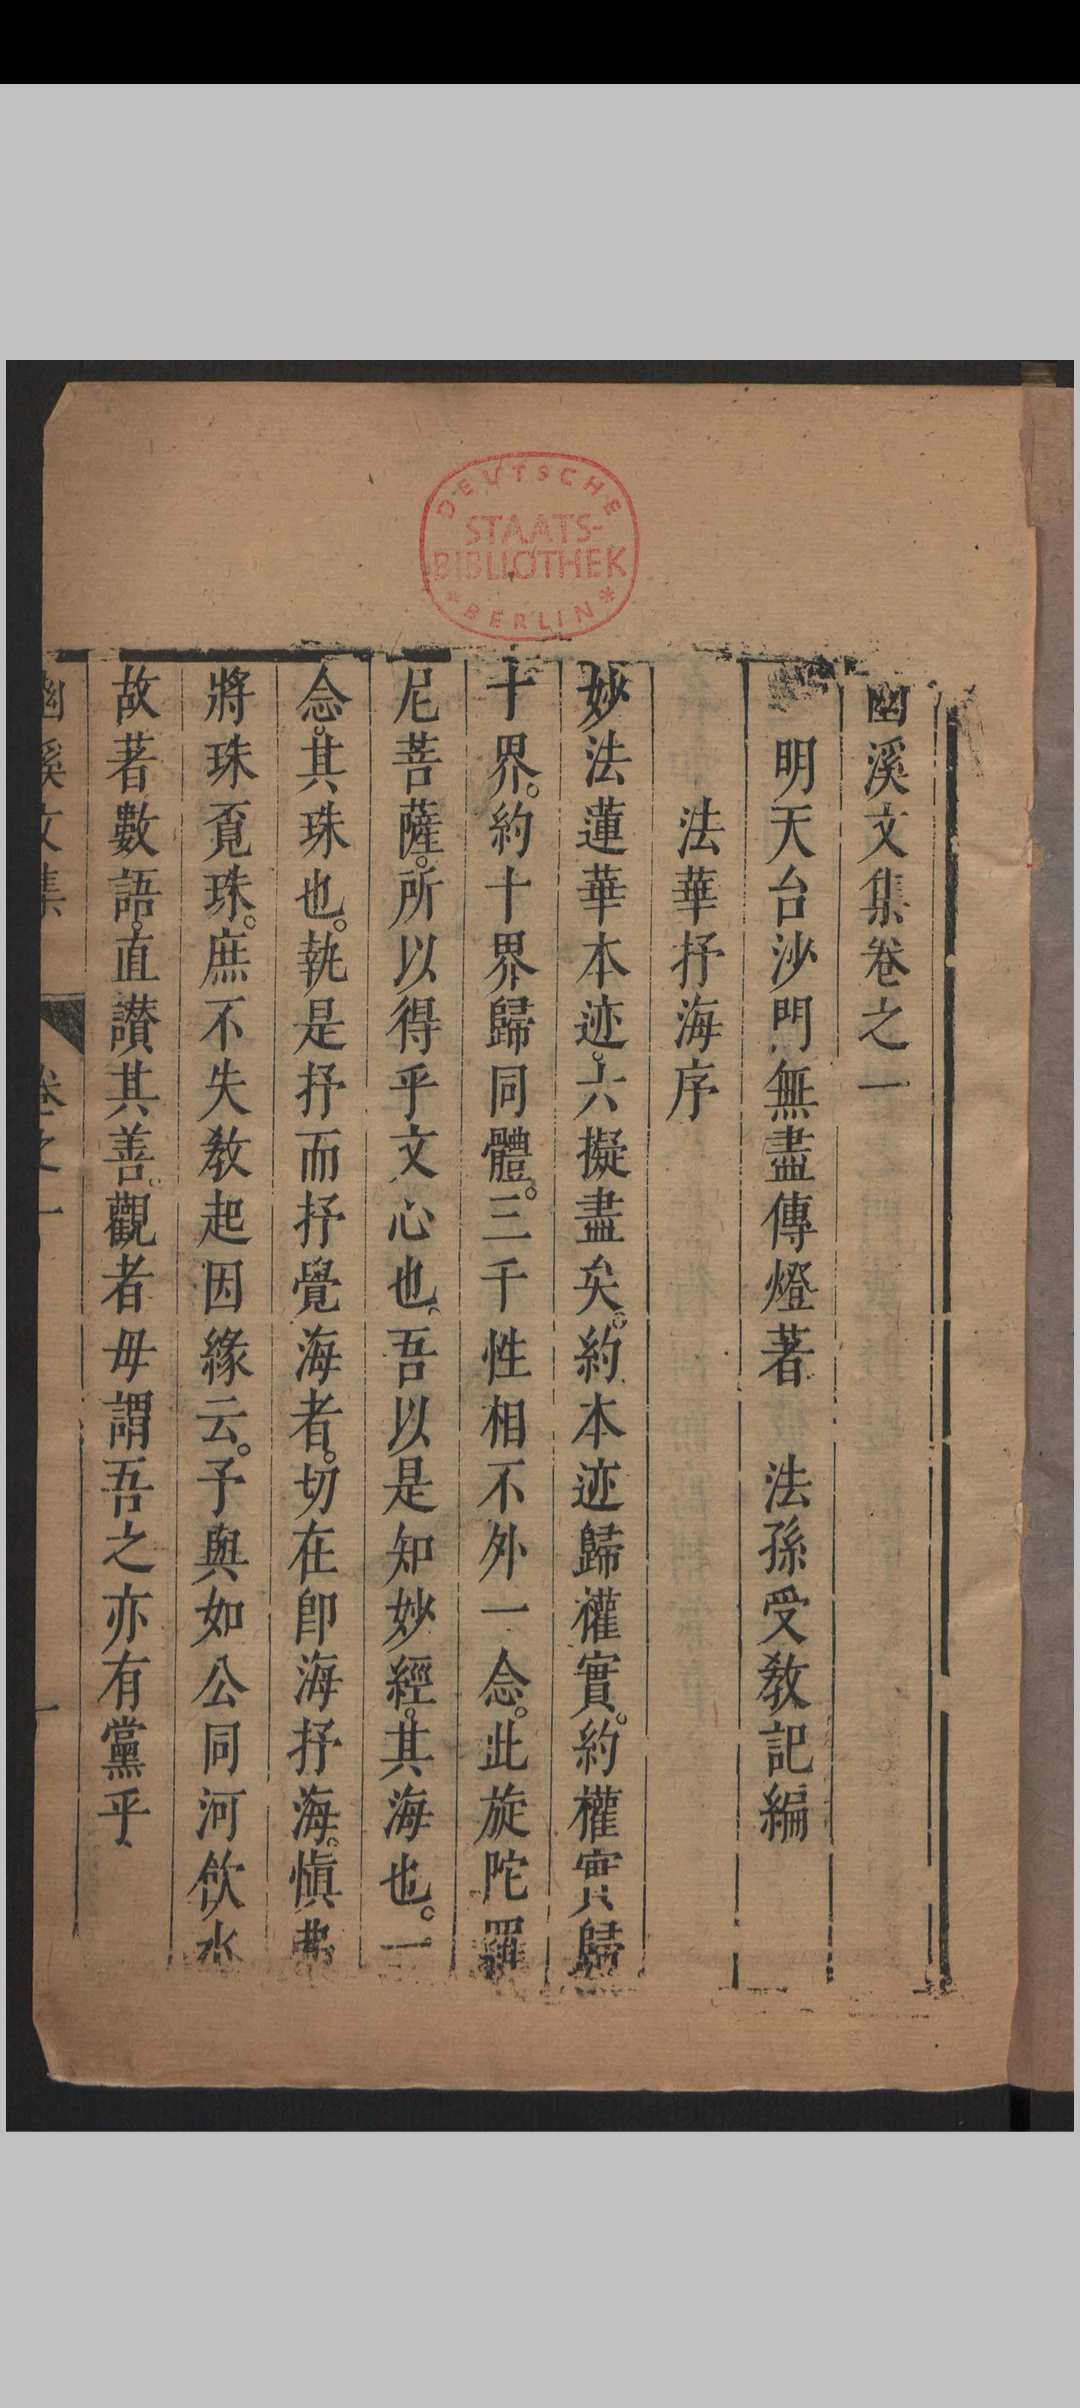 DEUTSCHE
STAATS-
BIBLIOTHEK
* BERLIN *
幽溪文集卷之一
明天台沙門無盡傳燈著 法孫受教記編
法華抒海序
妙法蓮華本迹。六擬盡矣。約本迹歸權實。約權實歸
十界。約十界歸同體。三千性相不外一念。此旋陀羅
尼菩薩。所以得乎文心也。吾以是知妙經。其海也。一
念。其珠也。執是抒而抒覺海者。切在卽海抒海。愼弗
將珠覓珠。庶不失教起因緣云。予與如公同河飲水
故著數語。直讃其善。觀者毋謂吾之亦有黨乎
幽溪文集 卷之一 一